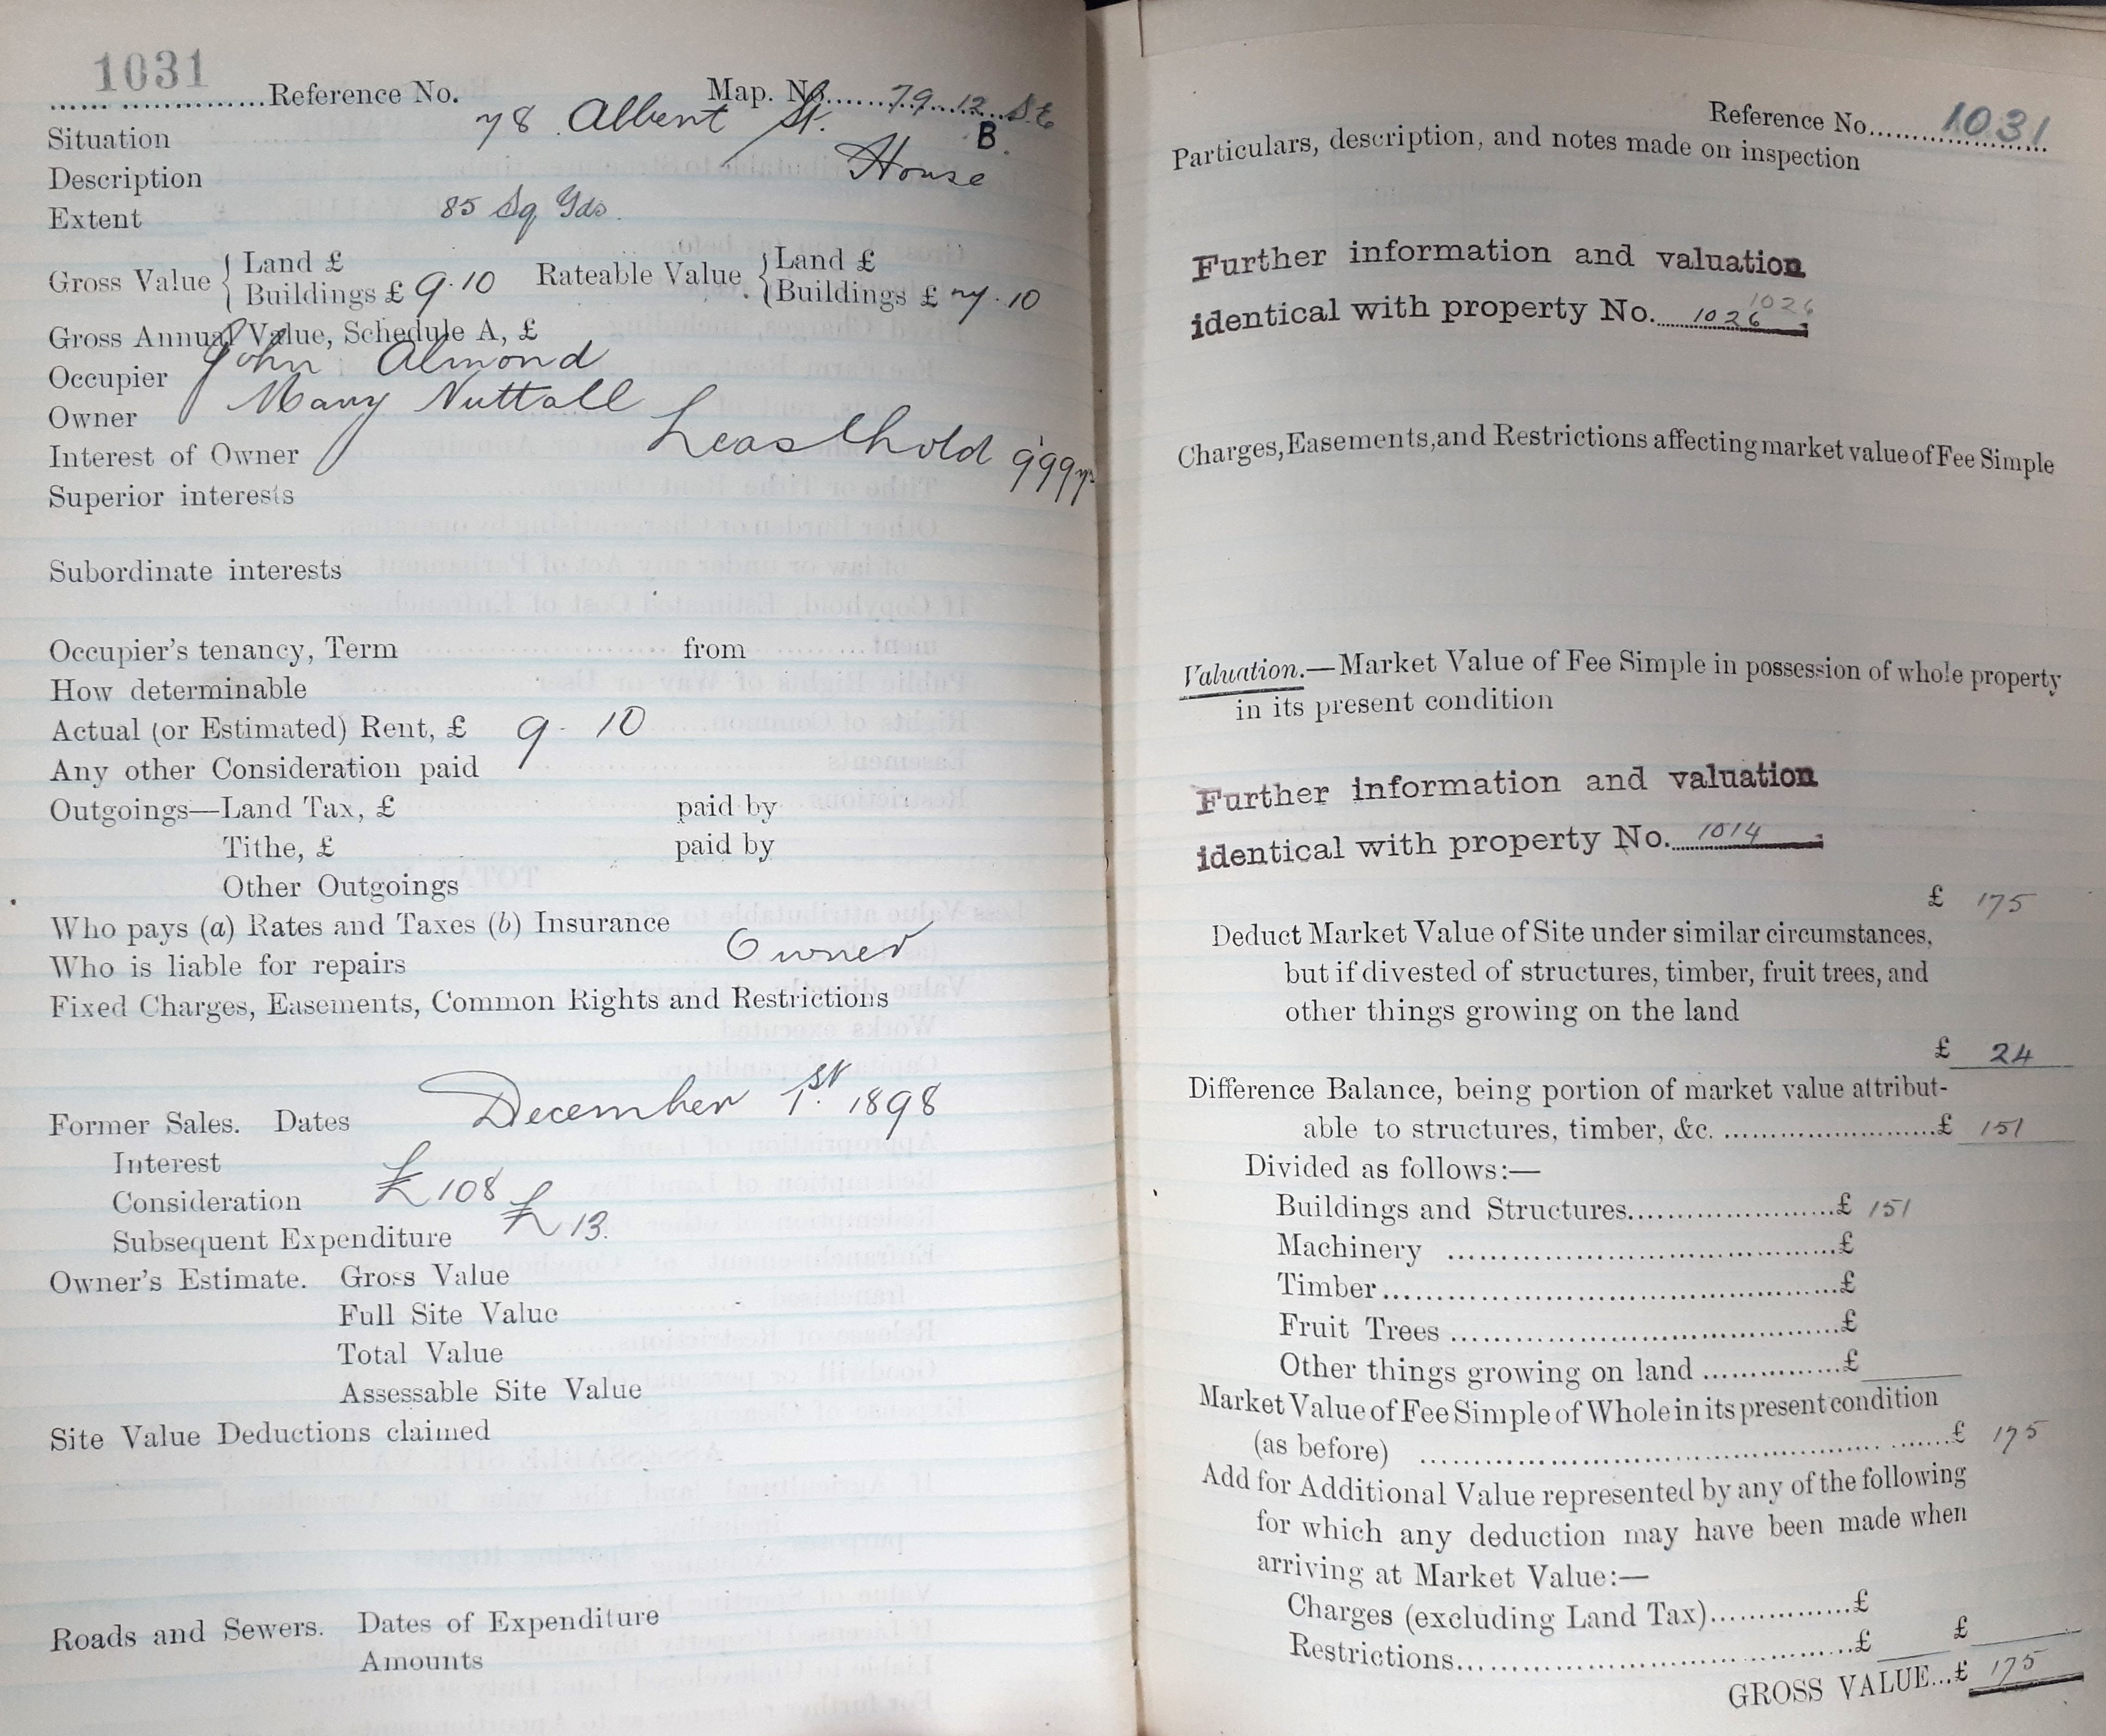 1031
...... ..............Reference No. Map. No........79.12.S.E
B.
Situation 78 Albert St.
Description House
Extent 85 Sq Yds.
Gross Value { Land £ Rateable Value { Land £
Buildings £ 9.10 Buildings £ 7.10
Gross Annual Value, Schedule A, £
Occupier John Almond
Owner Mary Nuttall
Interest of Owner Leasehold 999 yrs
Superior interests
Subordinate interests
Occupier's tenancy, Term from
How determinable
Actual (or Estimated) Rent, £ 9 - 10
Any other Consideration paid
Outgoings—Land Tax, £ paid by
Tithe, £ paid by
Other Outgoings
Who pays (a) Rates and Taxes (b) Insurance
Who is liable for repairs Owner
Fixed Charges, Easements, Common Rights and Restrictions
Former Sales. Dates December 1st. 1898
Interest
Consideration £108
Subsequent Expenditure £13.
Owner's Estimate. Gross Value
Full Site Value
Total Value
Assessable Site Value
Site Value Deductions claimed
Roads and Sewers. Dates of Expenditure
Amounts
Reference No........1031
Particulars, description, and notes made on inspection
Further information and valuation
1026
identical with property No. 1026
Charges, Easements, and Restrictions affecting market value of Fee Simple
Valuation.—Market Value of Fee Simple in possession of whole property
in its present condition
Further information and valuation
identical with property No. 1014
£ 175
Deduct Market Value of Site under similar circumstances,
but if divested of structures, timber, fruit trees, and
other things growing on the land
£ 24
Difference Balance, being portion of market value attribut-
able to structures, timber, &c. ..........................£ 151
Divided as follows:—
Buildings and Structures.........................£ 151
Machinery ..............................................£
Timber.......................................................£
Fruit Trees ..............................................£
Other things growing on land ................£
Market Value of Fee Simple of Whole in its present condition
(as before) ......................................................£ 175
Add for Additional Value represented by any of the following
for which any deduction may have been made when
arriving at Market Value:—
Charges (excluding Land Tax)................£
Restrictions..............................................£ £
GROSS VALUE...£ 175